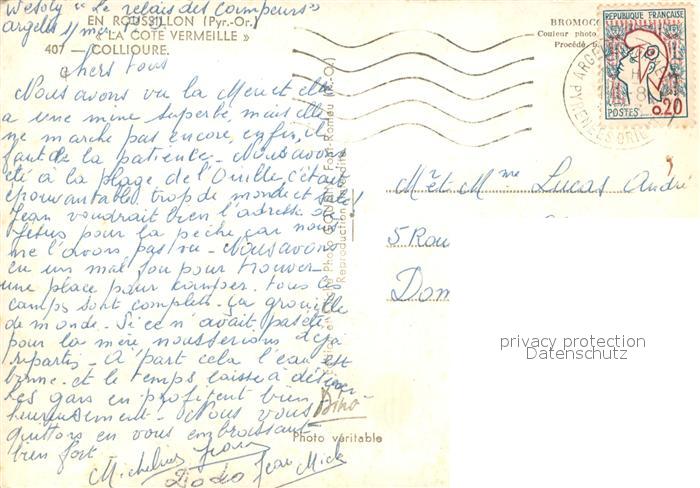 Wesoly "Le relais des Campeurs"
argelès s/ mer
EN ROUSSILLON (Pyr.-Or.)
« LA COTE VERMEILLE »
407 — COLLIOURE.
Chers tous
Nous avons vu la Mère et elle
a une mine superbe, mais elle
ne marche pas encore, enfin, il
faut de la patience. Nous avons
été à la plage de l'Ouille, c'était
épouvantable, trop de monde et sale!
Jean voudrait bien l'adresse de
Jésus pour la pêche car nous
ne l'avons pas vu. Nous avons
eu un mal fou pour trouver
une place pour camper. tous les
camps sont complets. ça grouille
de monde. Si ce n'avait pas été
pour la mère, nous serions déjà
repartis. A part cela l'eau est
bonne et le temps laisse à désirer
Les gars en profitent bien
heureusement! Nous vous
quittons en vous embrassant
bien fort
Micheline Jean
Dodo Jean Mick
Photo véritable
Reproduction interdite
BROMOCO
Couleur photo
Procédé
REPUBLIQUE FRANÇAISE
POSTES 0,20
PYRENEES ORIE
Mr et Mme Lucas André
5 Rou
Dom
privacy protection
Datenschutz